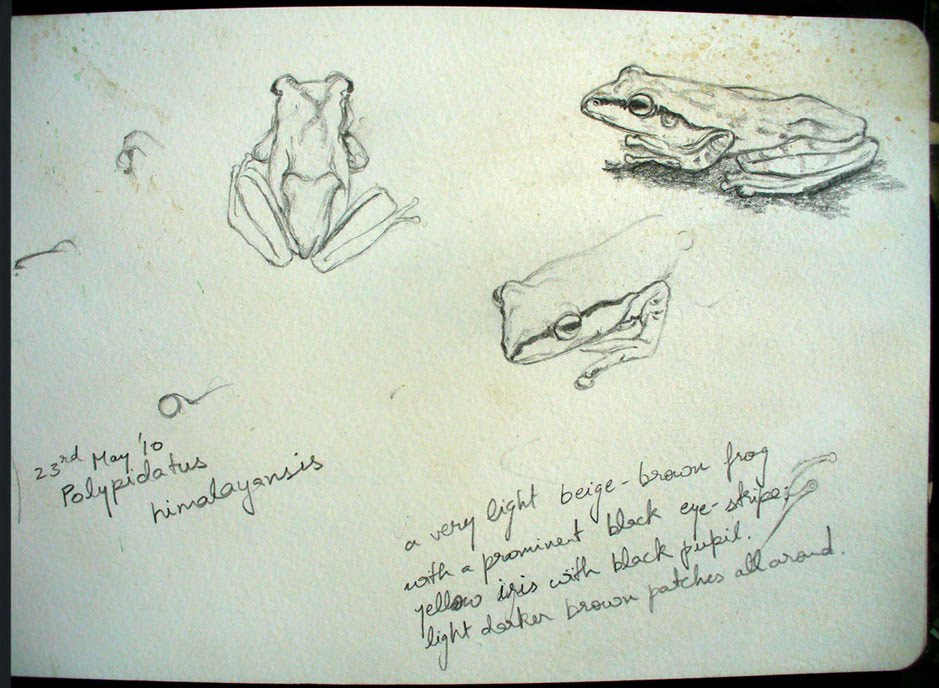 23rd May '10
Polypidatus
himalayansis
a very light beige-brown frog
with a prominent black eye-stripe;
yellow iris with black pupil.
light darker brown patches all around.